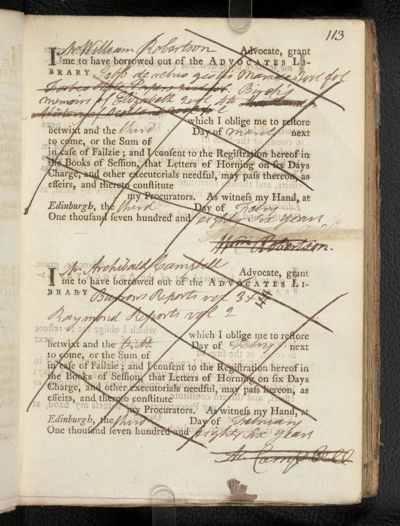 113
I Mr William Robertson Advocate, grant
me to have borrowed out of the ADVOCATES LI-
BRARY Jebb de rebus gestis Mariae
Birch's
memoirs of Elizabeth
which I oblige me to restore
betwixt and the third Day of March next
to come, or the Sum of
in case of Failzie; and I consent to the Registration hereof in
the Books of Session, that Letters of Horning on six Days
Charge, and other executorials needful, may pass thereon, as
effeirs, and thereto constitute
my Procurators. As witness my Hand, at
Edinburgh, the third Day of
One thousand seven hundred and eighty six years
Willm Robertson.
I Mr Archibald Campbell Advocate, grant
me to have borrowed out of the ADVOCATES LI-
BRARY Burrows Reports vol 3 & 4
Raymond Reports vol 2
which I oblige me to restore
betwixt and the Day of next
to come, or the Sum of
in case of Failzie; and I consent to the Registration hereof in
the Books of Session, that Letters of Horning on six Days
Charge, and other executorials needful, may pass thereon, as
effeirs, and thereto constitute
my Procurators. As witness my Hand, at
Edinburgh, the third Day of February
One thousand seven hundred and eighty six years
Ar Campbell